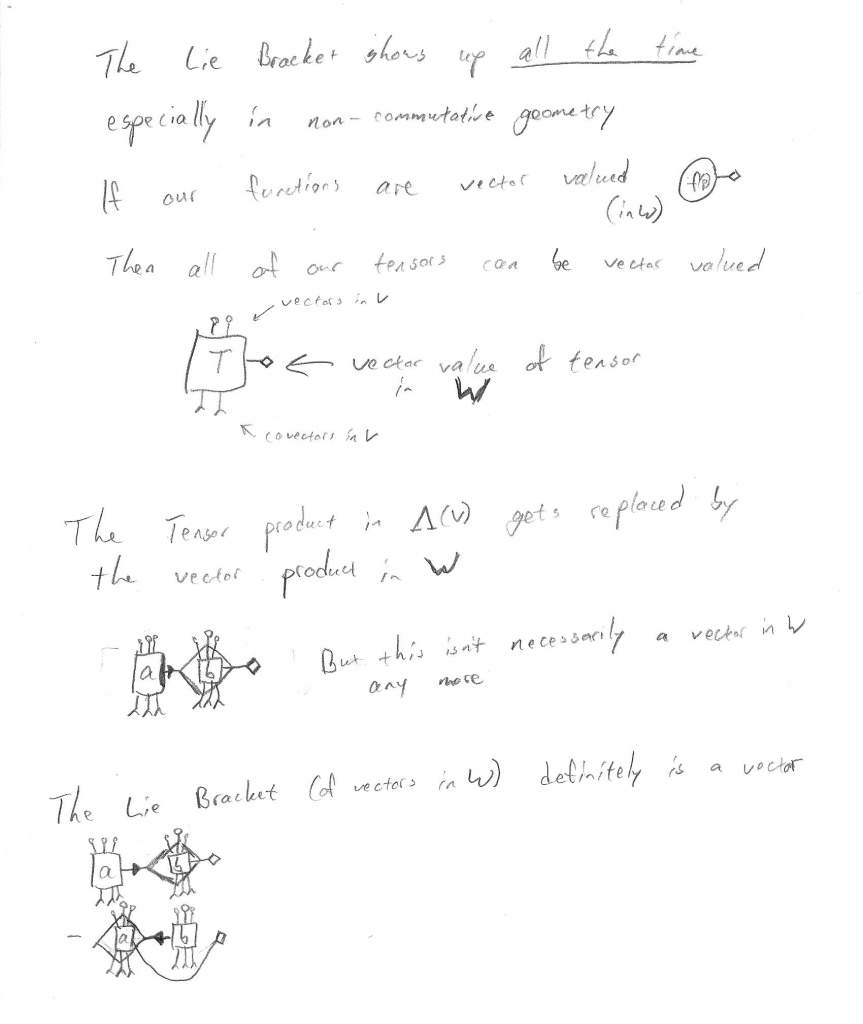 The Lie Bracket shows up all the time
especially in non-commutative geometry
If our functions are vector valued f(p)
(in W)
Then all of our tensors can be vector valued
vectors in V
T
vector value of tensor
in W
covectors in V
The Tensor product in Λ(V) gets replaced by
the vector product in W
a b
But this isn't necessarily a vector in W
any more
The Lie Bracket (of vectors in W) definitely is a vector
a b
- a b